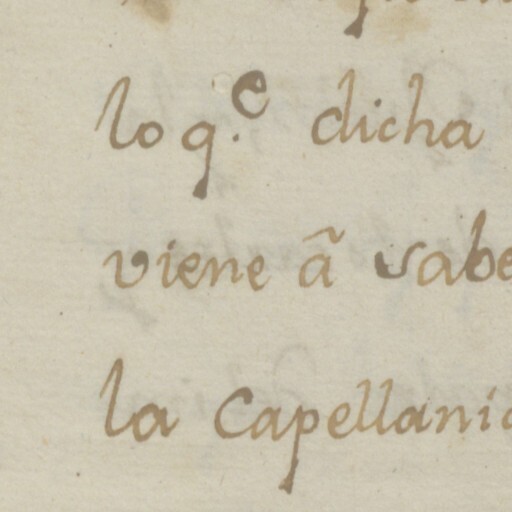 lo q.e dicha
viene ã sabe
la Capellani